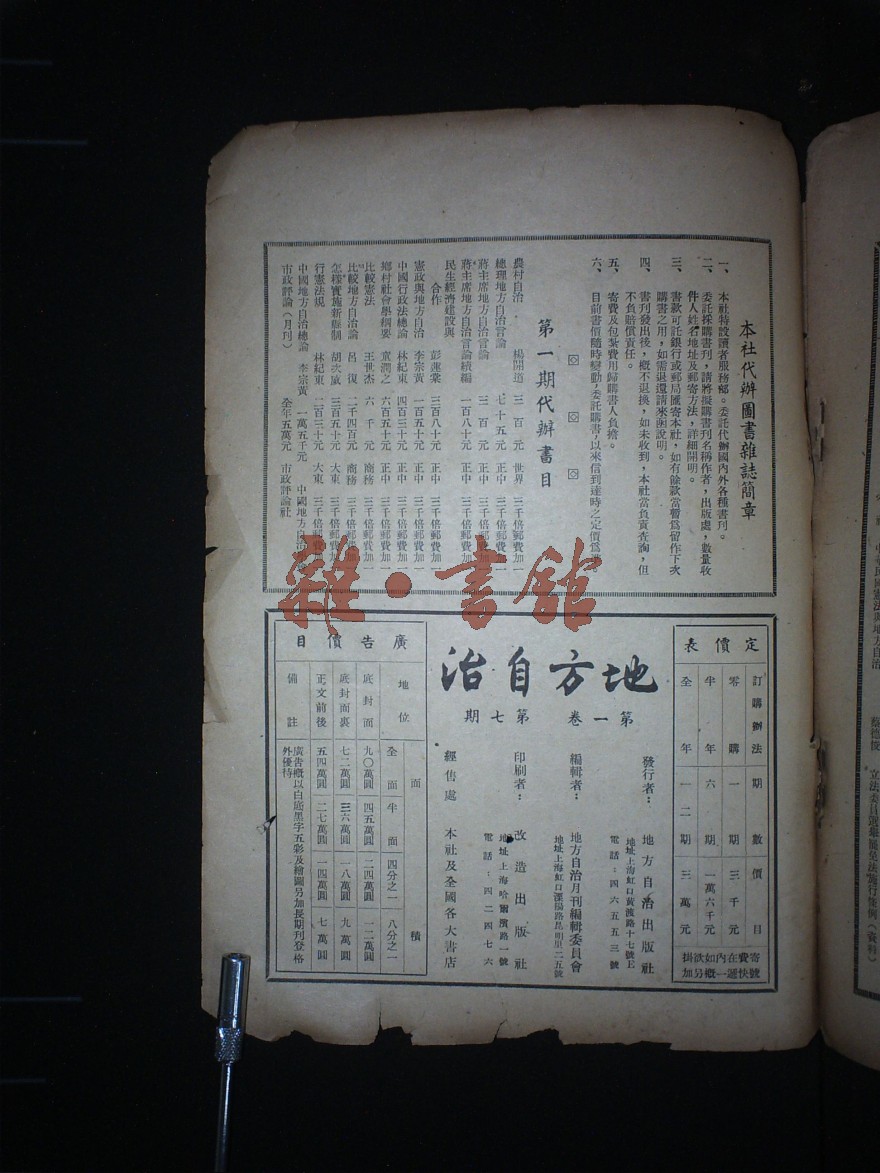 本社代辦圖書雜誌簡章
一、本社特設讀者服務部。委託代辦國內外各種書刊。
二、委託採購書刊，請將擬購書刊名稱作者，出版處，數量收
件人姓名地址及郵寄方法，詳細開明。
三、書款可託銀行或郵局匯寄本社，如有餘款當暫爲留作下次
購書之用，如需退還請來函說明。
四、書刊發出後，概不退換，如未收到，本社當負責查詢，但
不負賠償責任。
五、寄費及包紮費用歸購書人負擔。
六、目前書價隨時變動，委託購書，以來信到達時之定價爲
第一期代辦書目
農村自治 楊開道 三百元 世界 三千倍郵費加一
總理地方自治言論 七十五元 正中 三千倍郵費加一
蔣主席地方自治言論 三百元 正中 三千倍郵費加一
蔣主席地方自治言論續編 一百八十元 正中 三千倍郵費加一
民生經濟建設與
合作 彭蓮棠 三百八十元 正中 三千倍郵費加一
憲政與地方自治 李宗黃 一百五十元 正中 三千倍郵費加一
中國行政法總論 林紀東 四百三十元 正中 三千倍郵費加一
鄉村社會學綱要 童潤之 六百五十元 正中 三千倍郵費加一
比較憲法 王世杰 六千元 商務 三千倍郵費加一
比較地方自治論 呂復 二千四百元 商務 三千倍郵費加一
怎樣實施新縣制 胡次威 三百五十元 大東 三千倍郵費加一
行憲法規 林紀東 二百三十元 大東 三千倍郵費加一
中國地方自治總論 李宗黃 一萬五千元 中國地方自治
市政評論（月刊） 全年五萬元 市政評論社
雜·書館
定價表
訂購辦法 期數 價目
零購 一期 三千元
半年 六期 一萬六千元
全年 一二期 三萬元
寄費在內如欲掛
號快遞一概另加
地方自治
第一卷 第七期
發行者： 地方自治出版社
地址上海虹口黃渡路十七號E
電話：四六五五三號
編輯者： 地方自治月刊編輯委員會
地址上海虹口溧陽路昆明里二五號
印刷者： 改造出版社
地址上海哈爾濱路一號
電話：四二四七六
經售處 本社及全國各大書店
廣告價目
地位 面積
全面 半面 四分之一 八分之一
底封面 九〇萬圓 四五萬圓 二四萬圓 一二萬圓
底封面裏 七二萬圓 三六萬圓 一八萬圓 九萬圓
正文前後 五四萬圓 二七萬圓 一四萬圓 七萬圓
備註 廣告概以白底黑字五彩及繪圖另加長期刊登格
外優待
蔡德俊